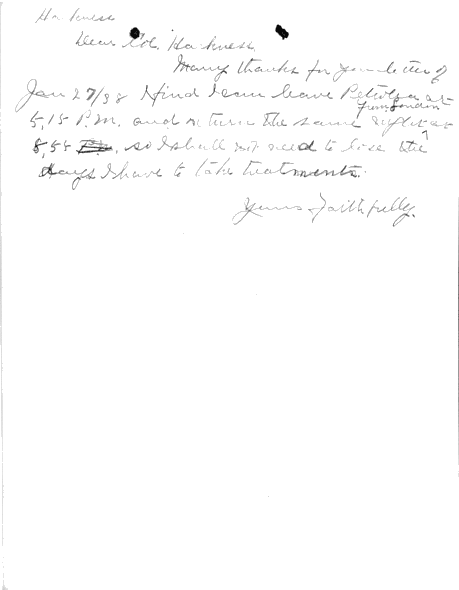 Harkness
Dear Col. Harkness.
Many thanks for your letter of
Jan 27/38 I find I can leave Petrolia at
from London
5,15 P.M. and return the same night at
8,55 , so I shall not need to lose the
days I have to take treatments.
Yours Faithfully.